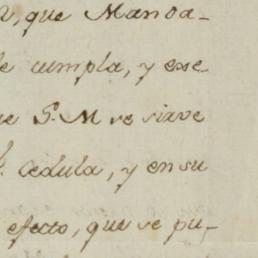 que Manda-
cumpla, y exe
S. M. se sirve
cedula, y en su
efecto, que se pu-